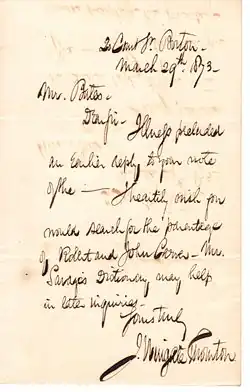 20 Court St. Boston -
March 29th 1873 -
Mr. Bates -
Dear Sir - Illness precluded
an earlier reply to your note
of the — I heartily wish you
would search for the parentage
of Robert and John - Mr.
Savage's Dictionary may help
in later inquiries -
Yours truly
J. Wingate Thornton